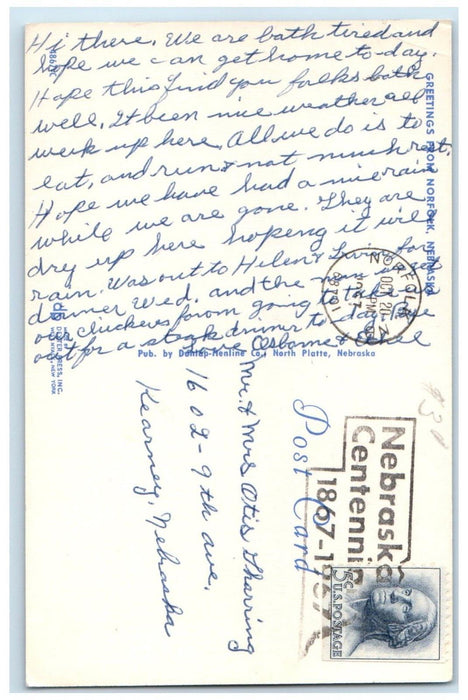 Hi there, We are both tired and
hope we can get home to-day.
Hope this find you folks both
well. It been nice weather all
week up here. All we do is to
eat, and run & not much rest.
Hope we have had a nice rain
while we are gone. They are
dry up here hopeing it will
rain. Was out to Helen & for
dinner Wed. and the
our going to take us
out for a steak dinner to day.
Love Osborne & Ethel
GREETINGS FROM NORFOLK, NEBRASKA
NORFOLK
OCT 20
PM
Pub. by Dunlap-Henline Co., North Platte, Nebraska
DEXTER PRESS, INC.
WEST NYACK, NEW YORK
Post Card
Mr. & Mrs Otis Sharing
1602-9th ave.
Kearney, Nebraska
$3
Nebraska
Centennial
1867-1967
5c U.S. POSTAGE